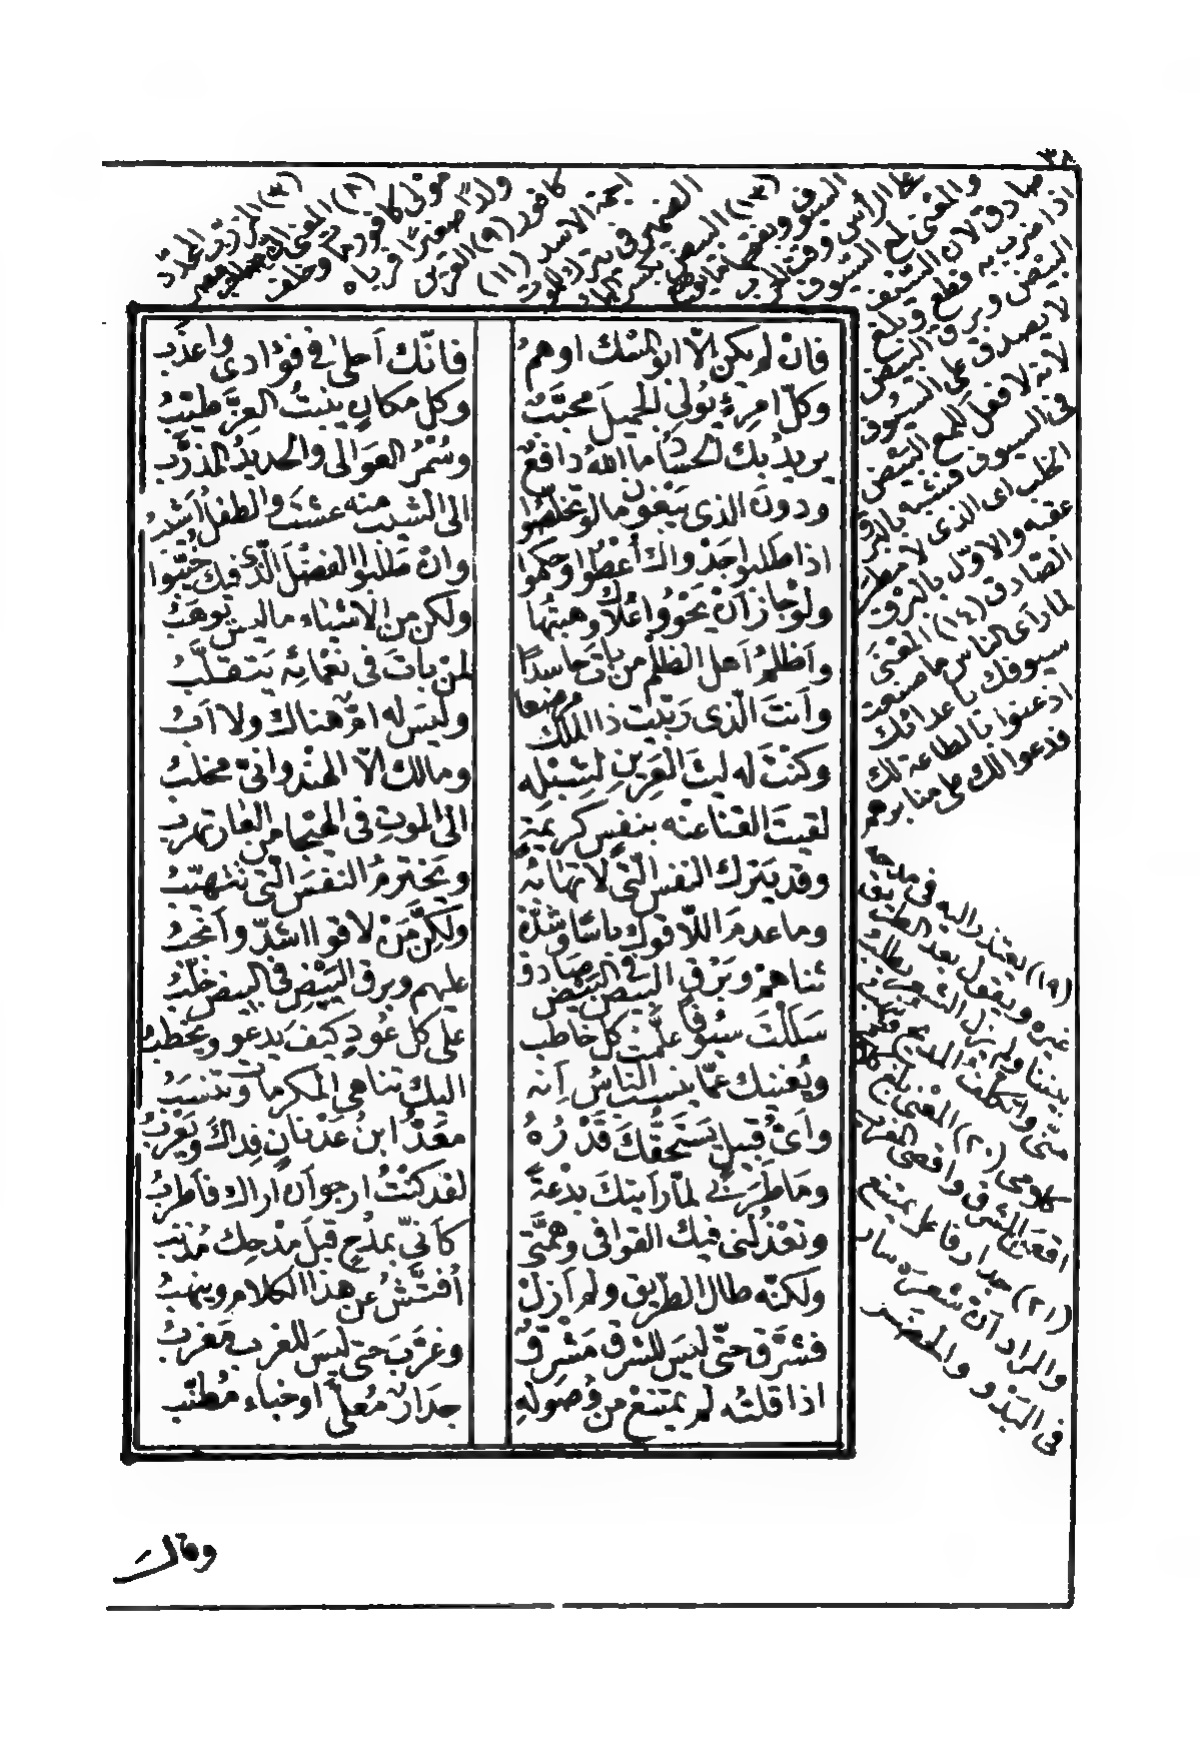 ٣٨
فان لم يكن الّا ابو المسك او همُ فانّك احلى في فؤادى واعذبُ
وكلّ امرءٍ يُولى الجميلَ محبّبٌ وكل مكانٍ ينبتُ العِزَّ طيّبُ
يريد بك الحسّادُ ما الله دافعٌ وسُمْرُ العوالى والحديدُ المذرّبُ
ودون الذى يبغون ما لو تخلّصوا الى الشيب منه عشتَ والطفلُ أشيبُ
اذا طلبوا جدواك أعطوا وحكّموا وان طلبوا الفضلَ الّذى فيك خيّبوا
ولو جاز أن يحووا علاك وهبتَها ولكن من الاشياء ما ليس يوهَبُ
وأظلمُ أهل الظلم من بات حاسدًا لمن باتَ في نعمائه يتقلّبُ
وأنتَ الّذى ربّيت ذا الملك مرضعا وليسَ له امّ هناك ولا أبُ
وكنتَ له ليثَ العرينِ لشبله ومالك الّا الهندوانىّ مخلبُ
لقيتَ القنا عنه بنفسٍ كريمةٍ الى الموتِ في الهيجا من العار تهربُ
وقد يترك النفس الّتى لا تهابُه ويخترم النفسَ التى تتهيّبُ
وما عدمَ اللّاقوك بأسًا وشدّةً ولكنّ مَنْ لاقوا اشدّ وأنجبُ
ثناهم وبَرْق البيض في البَيض صادق عليهم وبرق البَيْض في البيض خلّبُ
سَلَلْتَ سيوفًا علّمت كلّ خاطب على كل عُودٍ كيف يدعو ويخطبُ
ويُغنيك عمّا ينسب النّاسُ أنه اليك تناهى المكرمات وتنسَبُ
وأىّ قبيلٍ يستحقّكَ قَدْرُهُ معَدّ ابنُ عَدنانٍ فِداكَ ويَعْرُبُ
وما طرَبى لمّا رأيتكَ بدعةً لقد كنتُ ارجو أن اراك فأطربُ
وتعذُلنى فيك القوافى وهمّتى كأنّى بمدْحٍ قبلَ مدْحِك مُذنبُ
ولكنّه طال الطريق ولم أزلْ أفتّشُ عن هذا الكلام وينهبُ
فشرّق حتّى ليسَ للشرق مَشرقٌ وغرّبَ حتى ليسَ للغرب مَغربُ
اذا قلتُه لم يمتنعْ من وُصُولهِ جدارٌ مُعلّىً او خباء مُطنّبُ
(٣) المذرّب المحدّد
(٨) المعنى
مولى كافور وخلف
ولدًا صغيرًا فربّاه
كافور (٩) العرين
اجمة الاسد (١١)
الضمير في يترك للموت
(١٣)
والمعنى لمع السيوف
صادق لأن السيف
اذا ضرب به قطع وبلغ
البيض وبرق البيض
لا يصدق على السيوف
لانه لا فعل للمع البيض
في السيوف فشبّه بالبرق
الخلّب اى الذى لا مطر
عقبه والاوّل بالبرق
الصادق (١٤) المعنى
لما رأى الناس ما صنعت
سيوفك باعدائك
اذعنوا بالطاعة لك
فدعوا لك على منابرهم
(١٩) يعتذر اليه في مدحه
غيره ويقول بعد الطريق
بيننا ولم يزل الشعر يطلب
منّى واتكلّف المدح
(٢٠) المعنى بلغ
اقصى الشرق واقصى الغرب
(٢١) جدار فاعل يمتنع
والمراد أنّ شعره سار
في البدو والحضر
وقالَ